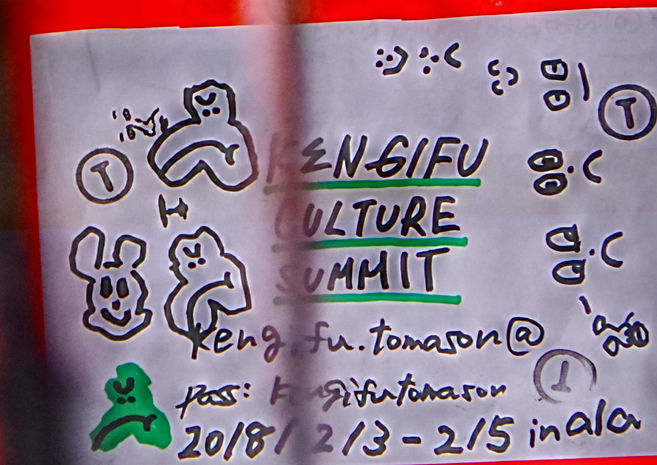 T
T
KENGIFU
CULTURE
SUMMIT
kengifu.tomason@
pass: kengifutomason
2018/2/3 - 2/5 in ala